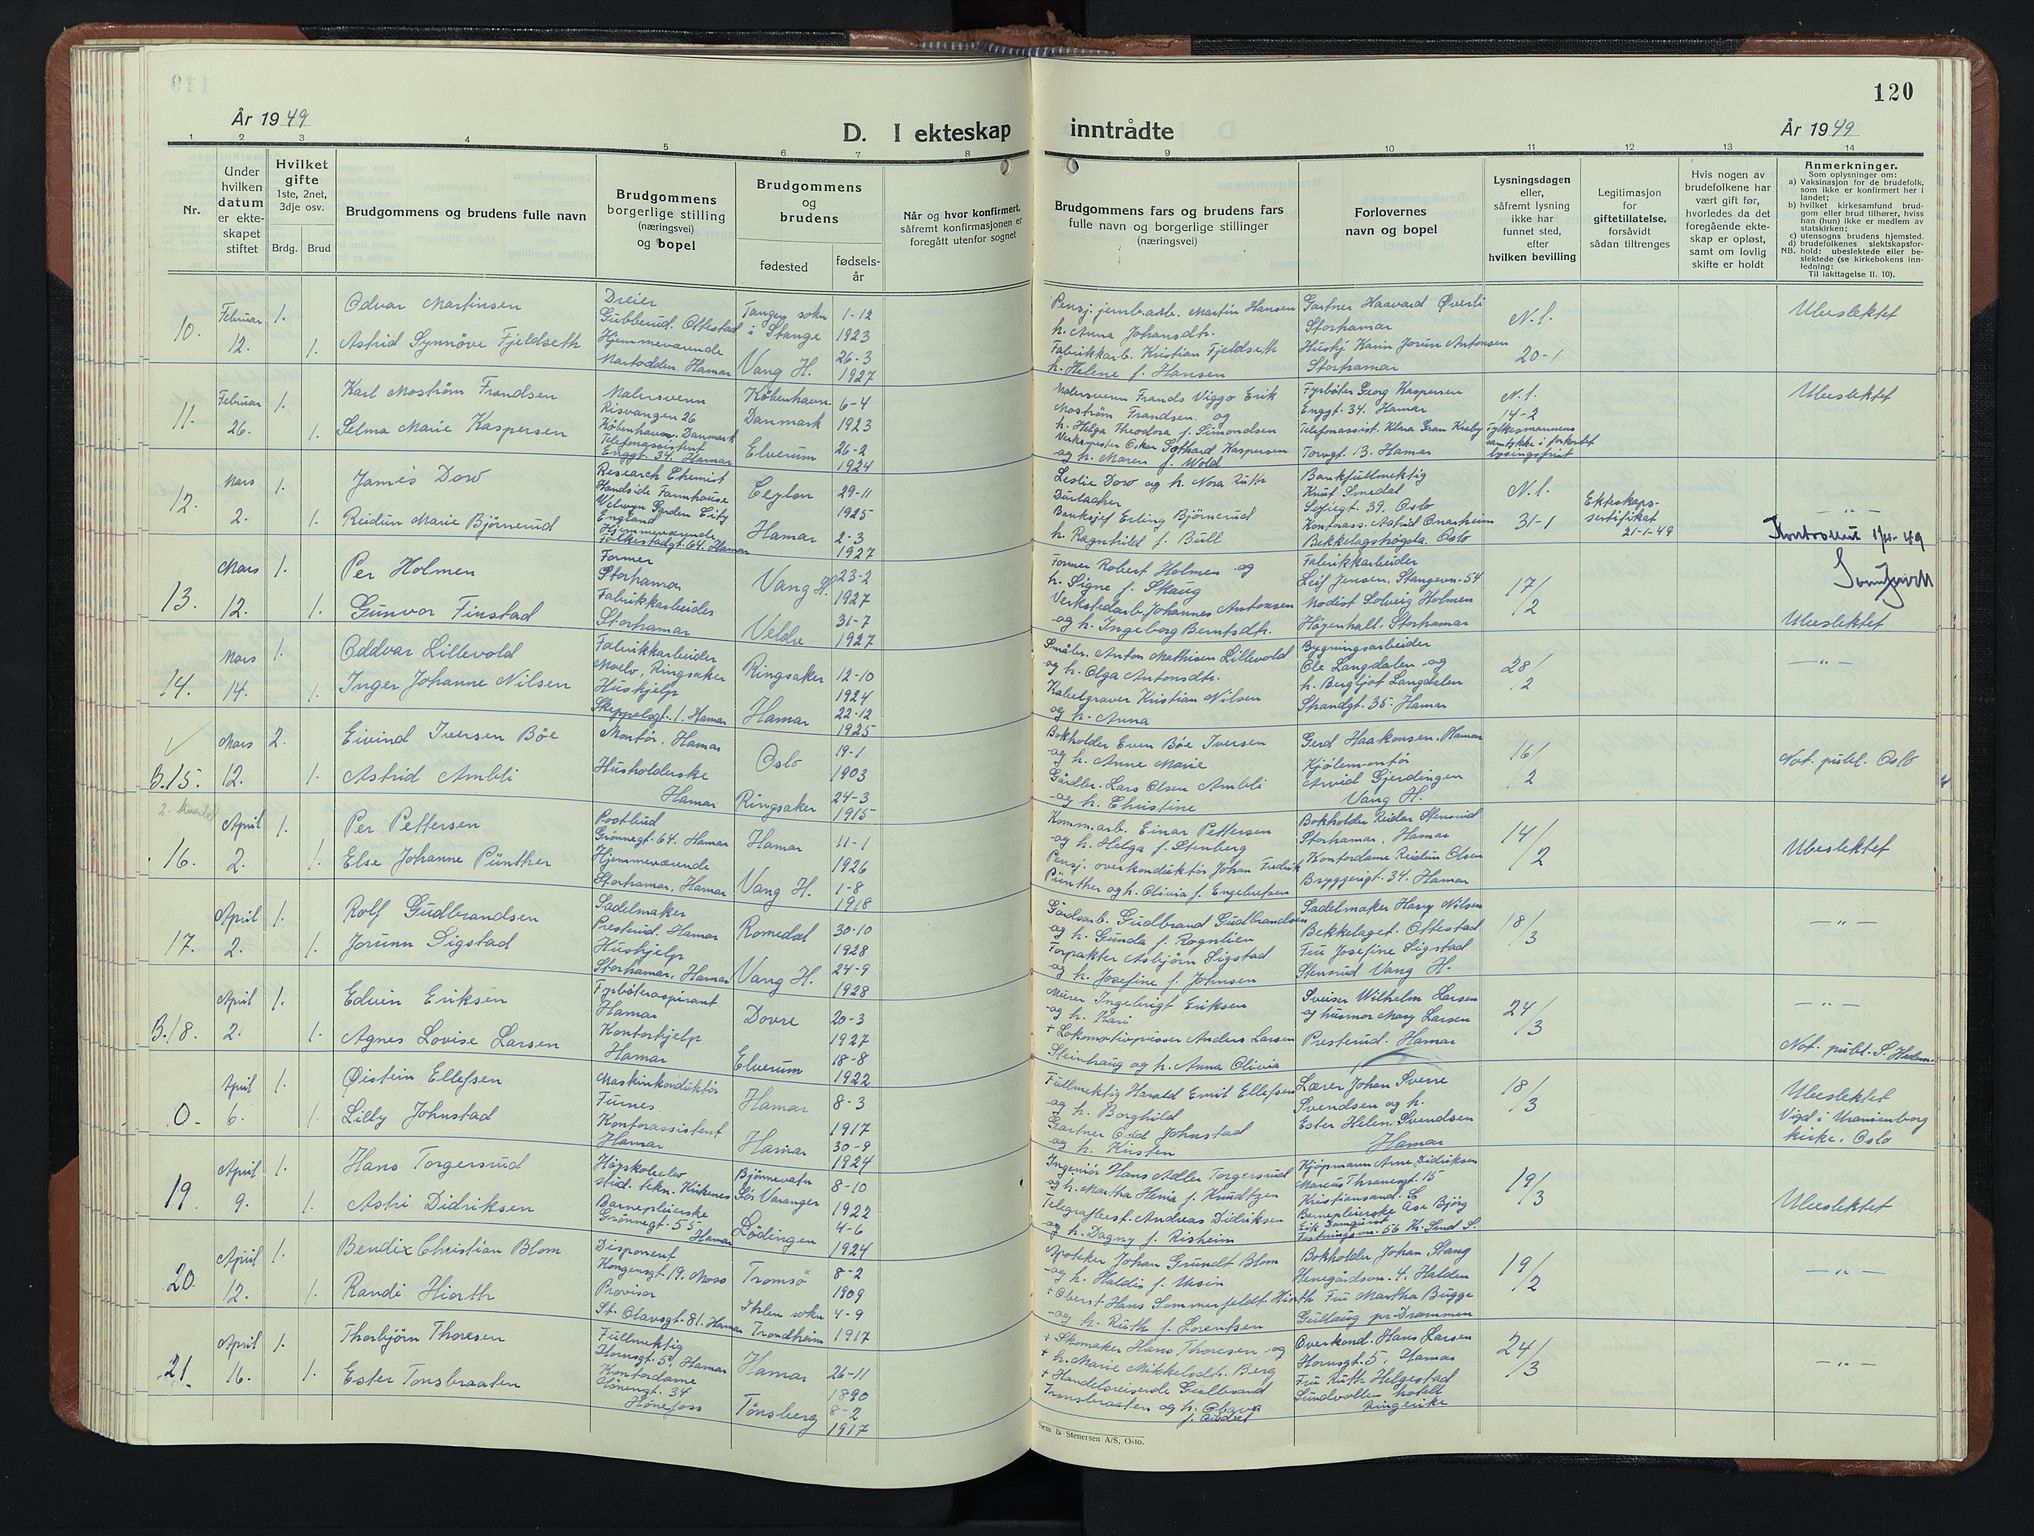 120
År 1949
D. I ekteskap inntrådte
År 1949
1 2 3 4 5 6 7 8 9 10 11 12 13 14
Nr.
Under hvilken datum er ekteskapet stiftet
Hvilket gifte
1ste, 2net, 3dje osv.
Brdg. Brud
Brudgommens og brudens fulle navn
Brudgommens borgerlige stilling (næringsvei) og bopel
Brudgommens og brudens
fødested fødselsår
Når og hvor konfirmert, såfremt konfirmasjonen er foregått utenfor sognet
Brudgommens fars og brudens fars fulle navn og borgerlige stillinger (næringsvei)
Forlovernes navn og bopel
Lysningsdagen eller, såfremt lysning ikke har funnet sted, efter hvilken bevilling
Legitimasjon for giftetillatelse, forsåvidt sådan tiltrenges
Hvis nogen av brudefolkene har vært gift før, hvorledes da det foregående ekteskap er opløst, samt om lovlig skifte er holdt
Anmerkninger.
Som oplysninger om:
a) Vaksinasjon for de brudefolk, som ikke er konfirmert her i landet:
b) hvilket kirkesamfund brudgom eller brud tilhører, hviss han (hun) ikke er medlem av statskirken:
c) utensogns brudens hjemsted.
d) brudefolkenes slektskapsforhold: ubeslektede eller beslektede (se kirkebokens innledning:
NB. Til iakttagelse II. 10).
10. Februar 12. 1. 1.
Odvar Martinsen
Astrid Synnøve Fjeldseth
Dreier
Gubberud, Ottestad
Hjemmeværende
Martodden, Hamar
Tangen sokn i Stange
1-12 1923
Vang H.
26-3 1927
Pensj. jernb.arb. Martin Hansen
h. Anna Johansdt.
Fabrikkarb. Kristian Fjeldseth
h. Helene f. Hansen
Gartner Haavard Øverli
Storhamar
Hushj. Karin Jorun Antonsen
Storhamar
N. l. 20-1
Ubeslektet
11. Februar 26. 1. 1.
Karl Moström Frandsen
Selma Marie Kaspersen
Malersvenn
Risvangen 26
København, Danmark
Telefonassistent
Enggt. 34. Hamar
København, Danmark
6-4 1923
Elverum
26-2 1924
Malersvenn Frands Viggo Erik
Moström Frandsen og
h. Helga Theodora f. Simondsen
Verksmester Oskar Gothard Kaspersen
og h. Maren f. Wold
Fyrbøter Georg Kaspersen
Enggt. 34. Hamar
Telefonassist. Klara Gran Kraby
Torvgt. 13. Hamar
N. l. 14-2
Fylkesmannens samtykke i forkortet lysingsfrist
Ubeslektet
12. Mars 2. 1. 1.
James Dow
Reidun Marie Bjørnerud
Research Chemist
Handside Farmhouse
Welwyn Garden City
England
Hjemmeværende
Folkestadgt. 64. Hamar
Ceylon
29-11 1925
Hamar
2-3 1927
Leslie Dow og h. Nora Ruth
Durlacher
Banksjef Erling Bjørnerud
h. Ragnhild f. Bull
Bankfullmektig
Knut Smedal
Sofiegt. 39. Oslo
Kontorass. Astrid Onarheim
Bekkelagshøgda, Oslo
N. l. 31-1
Ekteskapssertifikat 21-1-49
— " —
Kontrollert 1/4-49
13. Mars 12. 1. 1.
Per Holmen
Gunvor Finstad
Former
Storhamar
Fabrikkarbeider
Storhamar
Vang H.
23-2 1927
Veldre
31-7 1927
Former Robert Holmen og
h. Signe f. Skaug
Verkstedarb. Johannes Antonsen
og h. Ingeborg Berntsdt.
Fabrikkarbeider
Leif Jensen, Stangevn. 54
Modist Solveig Holmen
Høyenhall, Storhamar
17/2
Ubeslektet
14. Mars 14. 1. 1.
Oddvar Lillevold
Inger Johanne Nilsen
Fabrikkarbeider
Moelv, Ringsaker
Huskjelp
Skappelsgt. 1. Hamar
Ringsaker
12-10 1924
Hamar
22-12 1925
Småbr. Anton Mathisen Lillevold
og h. Olga Antonsdt.
Kabelgraver Kristian Nilsen
og h. Anna
Bygningsarbeider
Ole Langdalen og
h. Bergljot Langdalen
Strandgt. 35. Hamar
28/2
— " —
B. 15. Mars 12. 2. 1.
Eivind Iversen Bøe
Astrid Ambli
Montør, Hamar
Husholderske
Hamar
Oslo
19-1 1903
Ringsaker
24-3 1915
Bokholder Even Bøe Iversen
og h. Anne Marie
Gårdbr. Lars Olsen Ambli
og h. Christine
Gerd Haakonsen, Hamar
Kjølemontør
Arvid Gjerdingen
Vang H.
16/2
Not. publ. Oslo
2. kvartal
16. April 2. 1. 1.
Per Pettersen
Else Johanne Pünther
Postbud
Grønnegt. 64. Hamar
Hjemmeværende
Storhamar, Hamar
Hamar
11-1 1926
Vang H.
1-8 1918
Komm.arb. Einar Pettersen
og h. Helga f. Stenberg
Pensj. overkonduktør Johan Fredrik
Pünther og h. Olivia f. Engebretsen
Bokholder Reidar Stensrud
Storhamar, Hamar
Kontordame Reidun Olsen
Bryggerigt. 34. Hamar
14/2
Ubeslektet
17. April 2. 1. 1.
Rolf Gudbrandsen
Jorunn Sigstad
Sadelmaker
Presterud, Hamar
Huskjelp
Storhamar, Hamar
Romedal
30-10 1928
Vang H.
24-9 1928
Gårdsarb. Gudbrand Gudbrandsen
og h. Gunda f. Rognlien
Forpakter Asbjørn Sigstad
og h. Josefine f. Johnsen
Sadelmaker Harry Nilsen
Bekkelaget, Ottestad
Fru Josefine Sigstad
Stensrud Vang H.
18/3
— " —
B. 18. April 2. 1. 1.
Edvin Eriksen
Agnes Lovise Larsen
Fyrbøteraspirant
Hamar
Kontorhjelp
Hamar
Dovre
20-3 1927
Elverum
18-8 1922
Murer Ingebrigt Eriksen
og h. Kari
+ Lokomotivpusser Anders Larsen
Steinhaug og h. Anna Olivia
Sveiser Wilhelm Larsen
og husmor Mary Larsen
Presterud, Hamar
24/3
— " —
Not. publ. S. Hedm.
0. April 6. 1. 1.
Øistein Ellefsen
Lilly Johnstad
Maskinkonduktør
Furnes
Kontorassistent
Hamar
Hamar
8-3 1917
Hamar
30-9 1924
Fullmektig Harald Emil Ellefsen
og h. Borghild
Gartner Odd Johnstad
og h. Kirsten
Lærer Johan Sverre
Svendsen og h.
Ester Helen Svendsen
Hamar
18/3
Ubeslektet
Vigd i Uranienborg kirke, Oslo
19. April 9. 1. 1.
Hans Torgersrud
Astri Didriksen
Høyskoleelev
stud. tekn. Kirkenes
Barnepleierske
Grønnegt. 55 Hamar
Bjørnevatn
Sør Varanger
8-10 1922
Lödingen
4-6 1924
Ingeniør Hans Adler Torgersrud
og h. Martha Henia f. Knudtzen
Telegrafbest. Andreas Didriksen
og h. Dagny f. Risheim
Kjøpmann Arne Didriksen
Marcus Thranesgt. 15
Kristiansand. S.
Barnepleierske Åse Bjørg
Festningsvn. 56 Kr. Sand S.
19/3
Ubeslektet
20. April 12. 1. 1.
Bendix Christian Blom
Randi Hiorth
Disponent
Kongensgt. 19. Moss
Provisor
St. Olavsgt. 81. Hamar
Tromsø
8-2 1909
Ihlen sokn
Trondheim
4-9 1917
Apoteker Johan Grundt Blom
og h. Haldis f. Ursin
+ Oberst Hans Sommerfeldt Hiorth
og h. Ruth f. Lorentsen
Bokholder Johan Stang
Henegårdsvn. 4. Halden
Fru Martha Bugge
Gullaug pr. Drammen
19/2
— " —
21. April 16. 1. 1.
Thorbjørn Thoresen
Ester Tønsbraaten
Fullmektig
Hornsgt. 5, Hamar
Kontordame
Hönengt. 34
Hönefoss
Hamar
26-11 1890
Tønsberg
8-2 1917
+ Skomaker Hans Thoresen og
+ h. Marie Mikkelsdt. Berg
+ Handelsreisende Gulbrand
Tronsbraaten og h. Olava
Overkond. Hans Larsen
Hornsgt. 5, Hamar
Fru Ruth Helgestad
Sundvollen hotell
Ringerike
24/3
— " —
Sem & Stenersen A/S, Oslo.